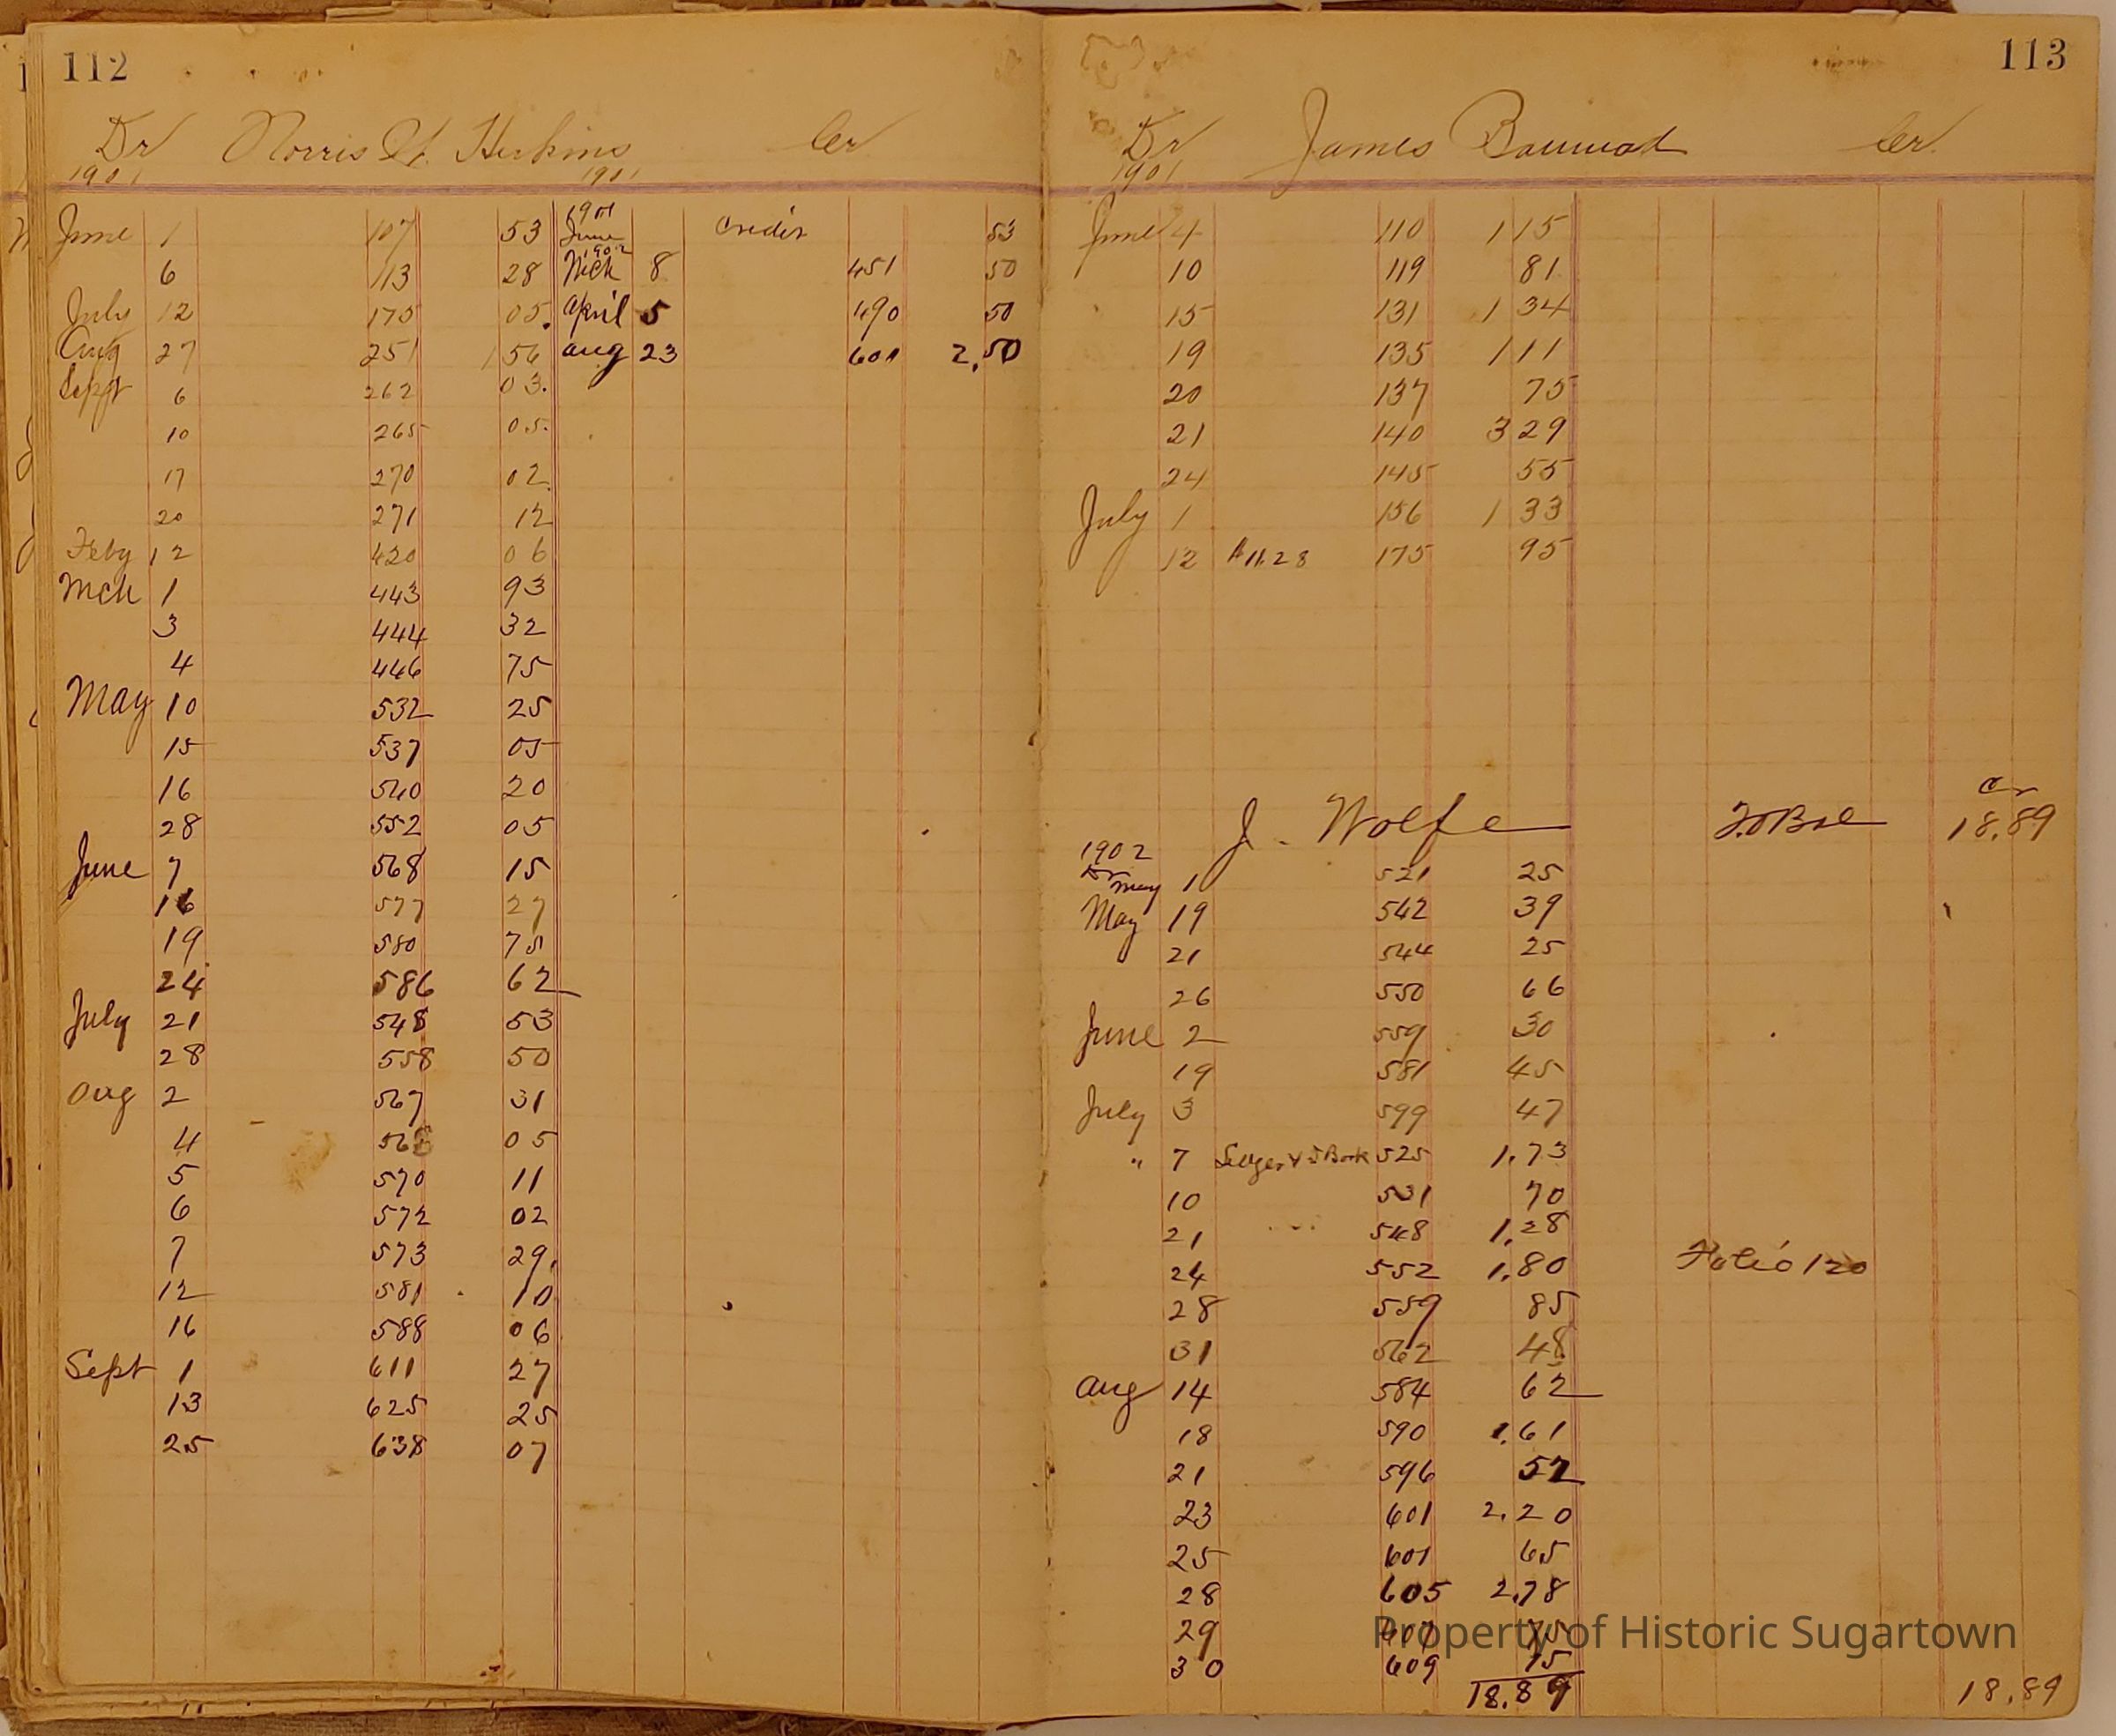 112
Dr Norris H. Huckins Cr
1901 1901
June 1 107 53 1901 June Credit 53
6 113 28 1902 Mch 8 451 50
July 12 175 05. April 5 490 50
Aug 27 251 1 56 Aug 23 601 2.50
Sept 6 262 03.
10 265 05.
17 270 02.
20 271 12
Feby 12 420 06
Mch 1 443 93
3 444 32
4 446 75
May 10 532 25
15 537 05
16 540 20
28 552 05
June 7 568 15
16 577 27
19 580 75
24 586 62
July 21 548 53
28 558 50
Aug 2 567 31
4 568 05
5 570 11
6 572 02
7 573 29.
12 581 10
16 588 06
Sept 1 611 27
13 625 25
25 638 07
113
Dr James Cr.
1901
June 4 110 1 15
10 119 81
15 131 1 34
19 135 1 11
20 137 75
21 140 3 29
24 145 55
July 1 156 1 33
12 11.28 175 95
Cr
J. Wolfe To Bal 18.89
1902
Dr May 1 521 25
May 19 542 39
21 544 25
26 550 66
June 2 559 30
19 581 45
July 3 599 47
" 7 525 1.73
10 531 70
21 548 1.28
24 552 1.80 Folio 120
28 559 85
31 562 48
Aug 14 584 62
18 590 1.61
21 596 52
23 601 2.20
25 601 65
28 605 2.78
29 607 75
30 609 15
18.89 18.89
Property of Historic Sugartown